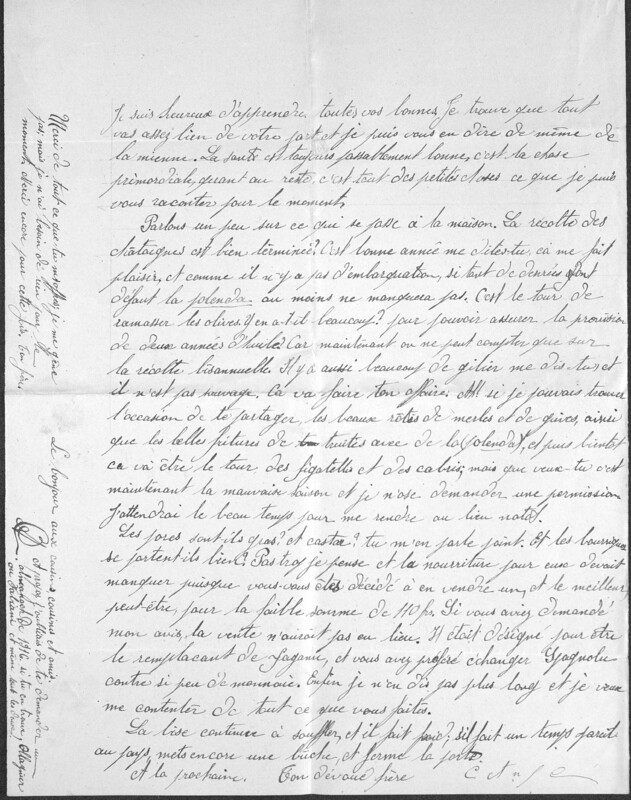 Je suis heureux d'apprendre toutes vos bonnes. Je trouve que tout
vas assez bien de votre part et je puis vous en dire de même de
la mienne. La santé est toujours passablement bonne, c'est la chose
primordiale, quant au reste, c'est tout des petites choses ce que je puis
vous raconter pour le moment.
Parlons un peu sur ce qui se passe à la maison. La récolte des
chataignes est bien terminée? C'est bonne année me dites-tu, ça me fait
plaisir, et comme il n'y a pas d'embarquation, si tout de denrées font
défaut la polenda, au moins ne manquera pas. C'est le tour de
ramasser les olives. Y en a-t-il beaucoup? pour pouvoir assurer la provision
de deux années d'huile? Car maintenant on ne peut compter que sur
la récolte bisannuelle. Il y a aussi beaucoup de gibier me dis-tu, et
il n'est pas sauvage. Ça va faire ton affaire. Ah! si je pouvais trouver
l'occasion de te partager, les beaux rôtis de merles et de grives, ainsi
que les belles fritures de truites avec de la (polenda), et puis bientôt
ça va être le tour des figatelles et des cabris, mais que veux-tu c'est
maintenant la mauvaise saison et je n'ose demander une permission
J'attendrai le beau temps pour me rendre au lieu natal.
Les porcs sont ils gras? et castar? tu m'en parle point. Et les bourriques
se portent ils bien? Pas trop je pense et la nourriture pour eux devait
manquer puisque vous vous êtes décidé à en vendre un, et le meilleur
peut-être, pour la faible somme de 110 fr. Si vous aviez demandé
mon avis, la vente n'aurait pas eu lieu. Il était désigné pour être
le remplaçant de Faganu, et vous avez préféré échanger
contre si peu de monnaie. Enfin je n'en dis pas plus long et je veux
me contenter de tout ce que vous faites.
La bise continue à souffler, et il fait froid; s'il fait un temps pareil
au pays, mets encore une bûche, et ferme la porte.
A la prochaine. Ton dévoué frère
Merci de tout ce que tu m'offres, je me gêne
pas, mais je n'ai besoin de rien pour le
moment, Merci encore pour cette fois, ton frère,
Le bonjour aux cousins, cousines et amis.
J'oubliais de te demander un
almanach de 1916
ou Italiani et même tous les deux.